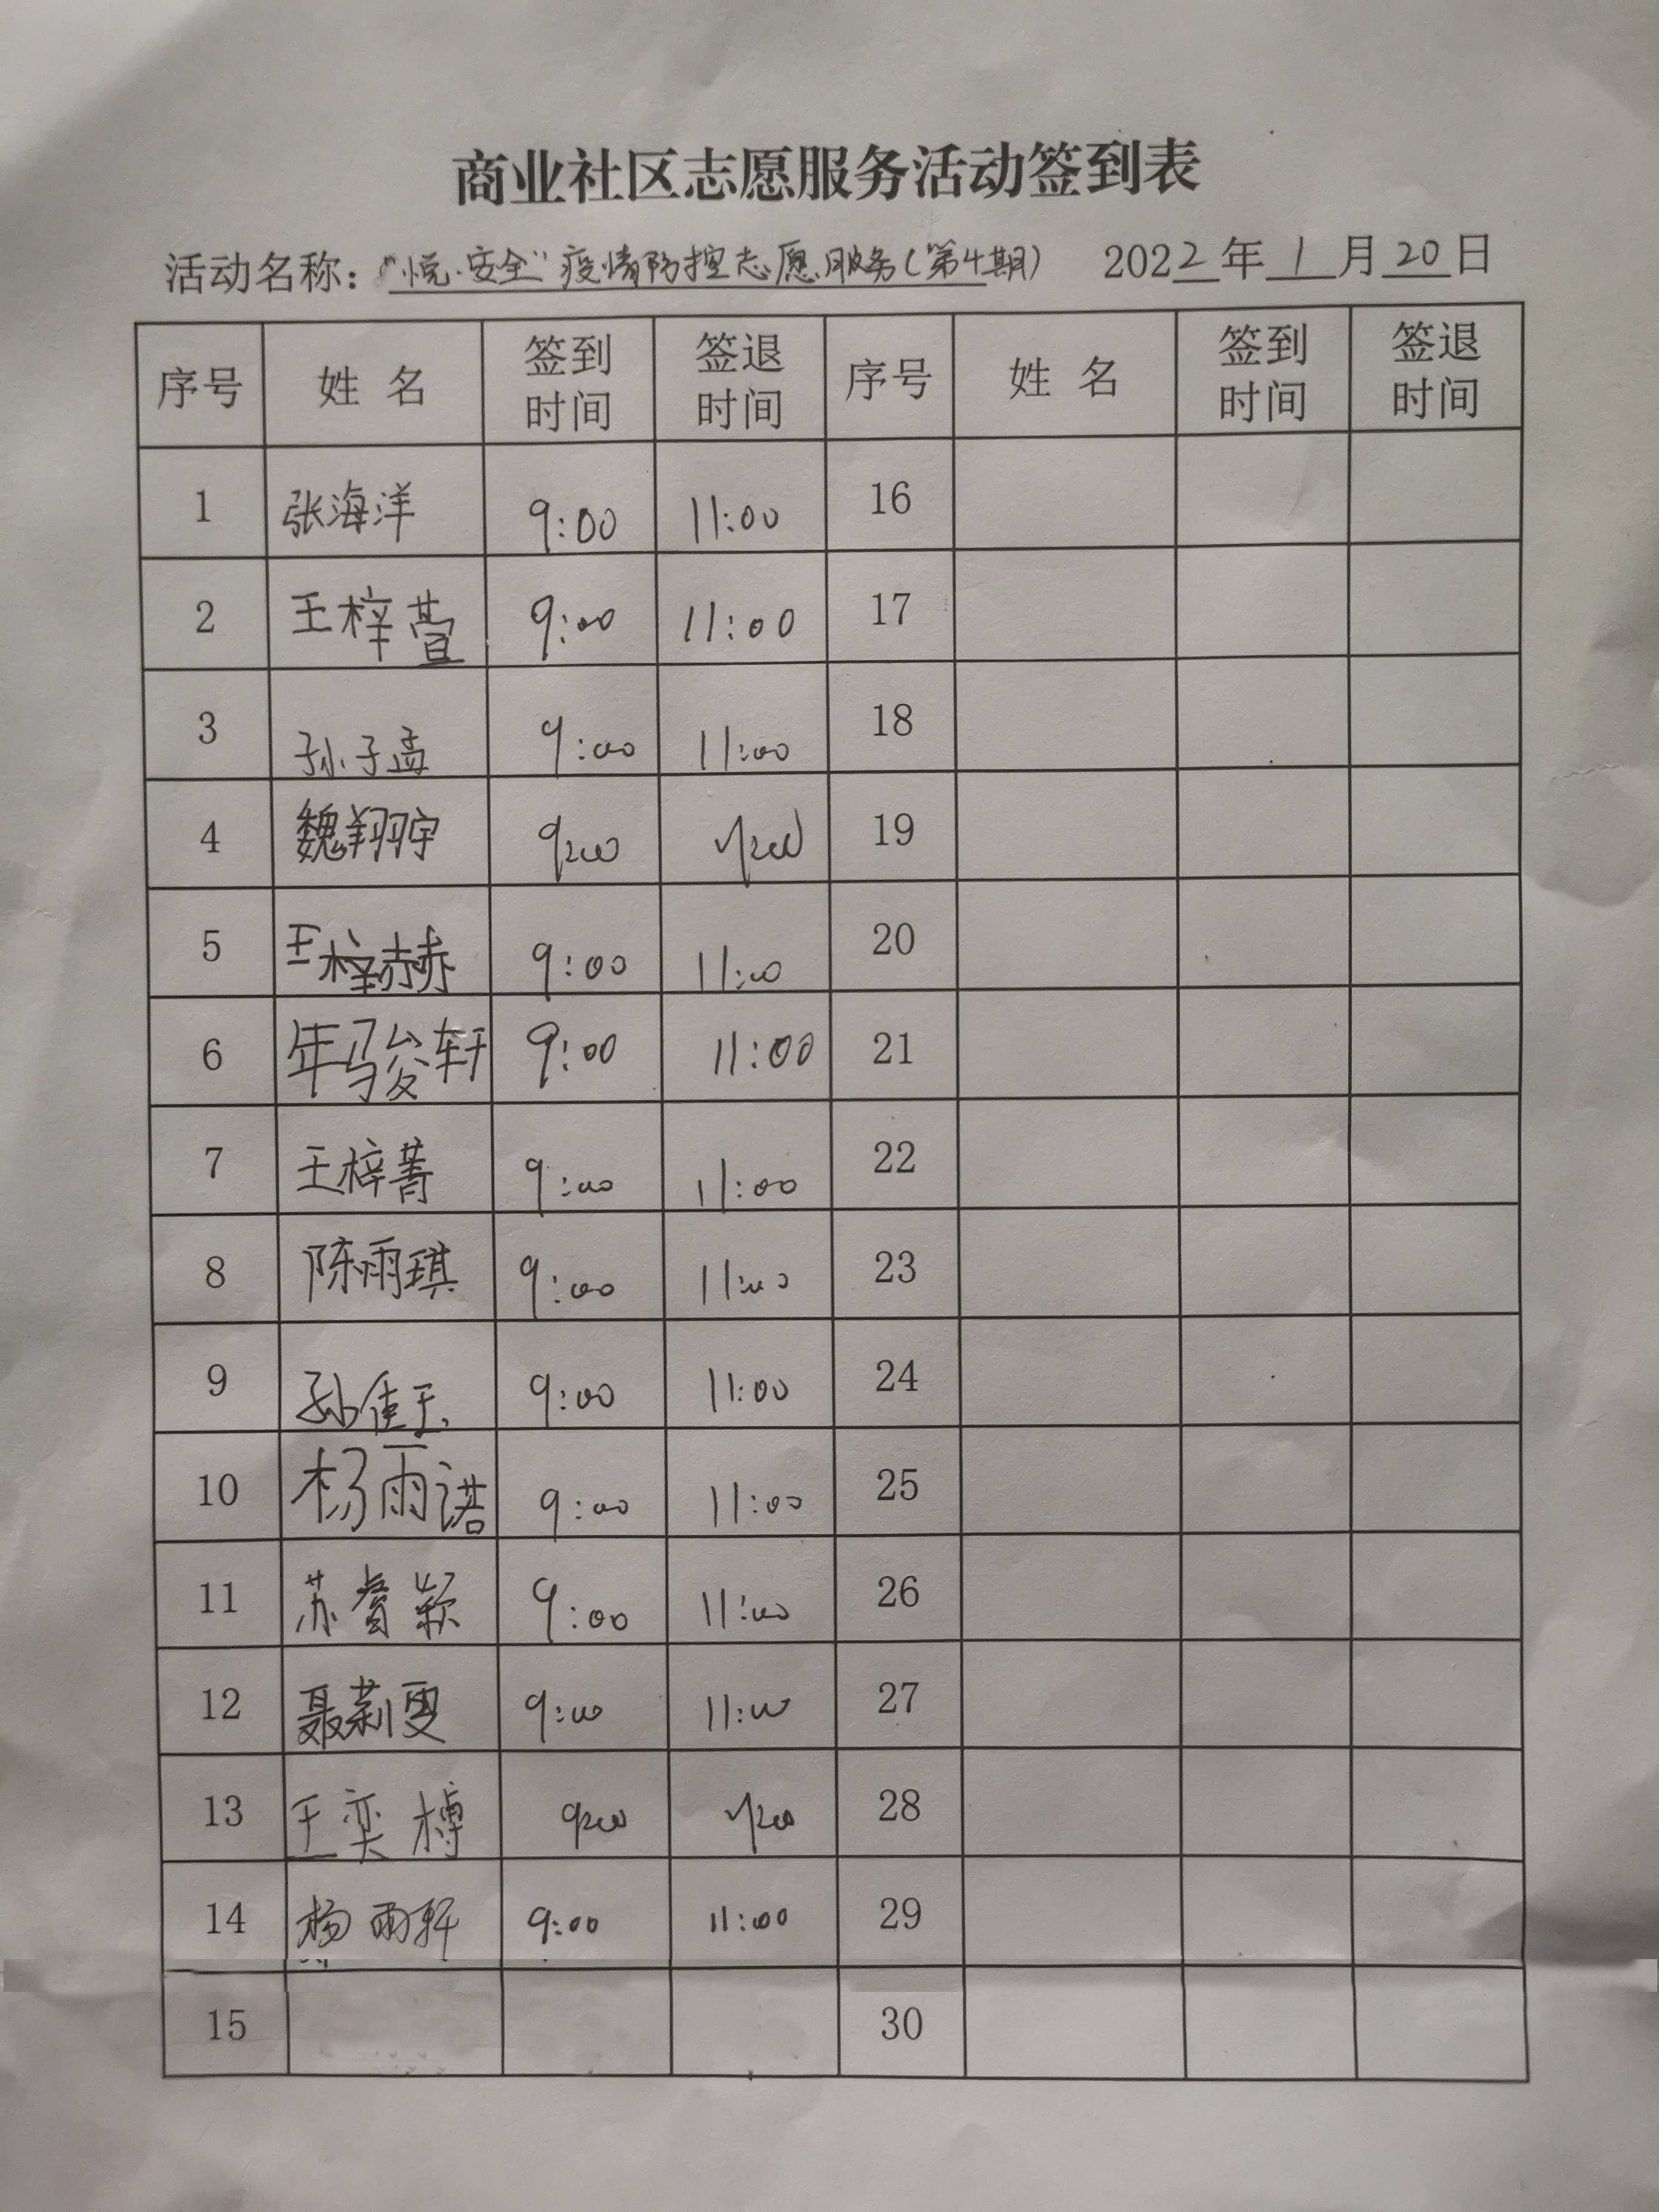 商业社区志愿服务活动签到表
活动名称："悦·安全"疫情防控志愿服务(第4期) 2022年1月20日
序号 姓名 签到时间 签退时间 序号 姓名 签到时间 签退时间
1 张海洋 9:00 11:00 16
2 王梓萱 9:00 11:00 17
3 孙子孟 9:00 11:00 18
4 魏翔宇 9:00 11:00 19
5 王梓赫 9:00 11:00 20
6 年骏轩 9:00 11:00 21
7 王梓菁 9:00 11:00 22
8 陈雨琪 9:00 11:00 23
9 孙佳玉 9:00 11:00 24
10 杨雨诺 9:00 11:00 25
11 苏睿颖 9:00 11:00 26
12 聂莉雯 9:00 11:00 27
13 王奕樽 9:00 11:00 28
14 杨雨轩 9:00 11:00 29
15 30